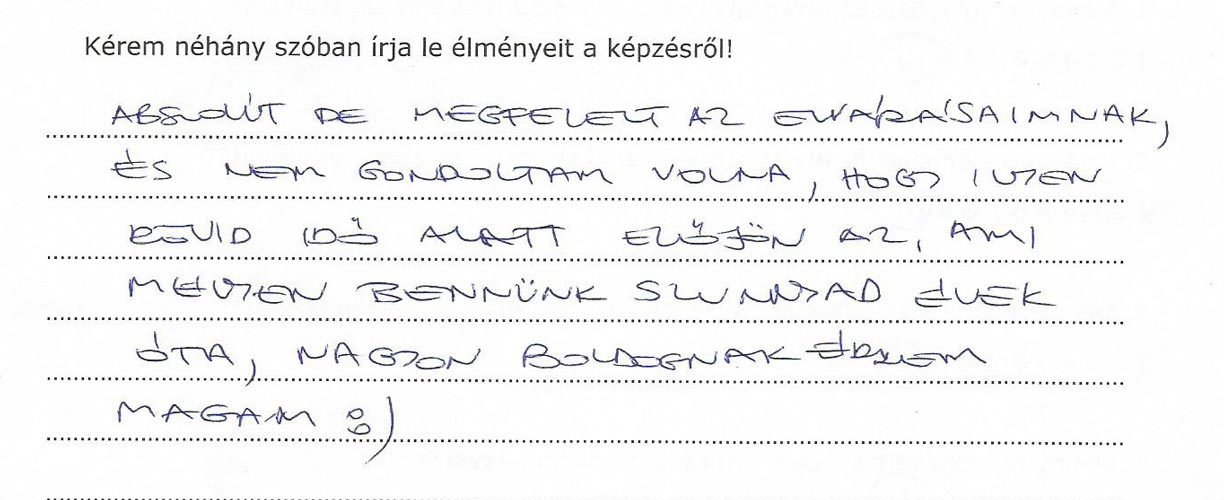 Kérem néhány szóban írja le élményeit a képzésről!
ABSZOLÚT DE MEGFELELT AZ ELVÁRÁSAIMNAK,
ÉS NEM GONDOLTAM VOLNA, HOGY ILYEN
RÖVID IDŐ ALATT ELŐJÖN AZ, AMI
MÉLYEN BENNÜNK SZUNNYAD ÉVEK
ÓTA, NAGYON BOLDOGNAK ÉRZEM
MAGAM :)